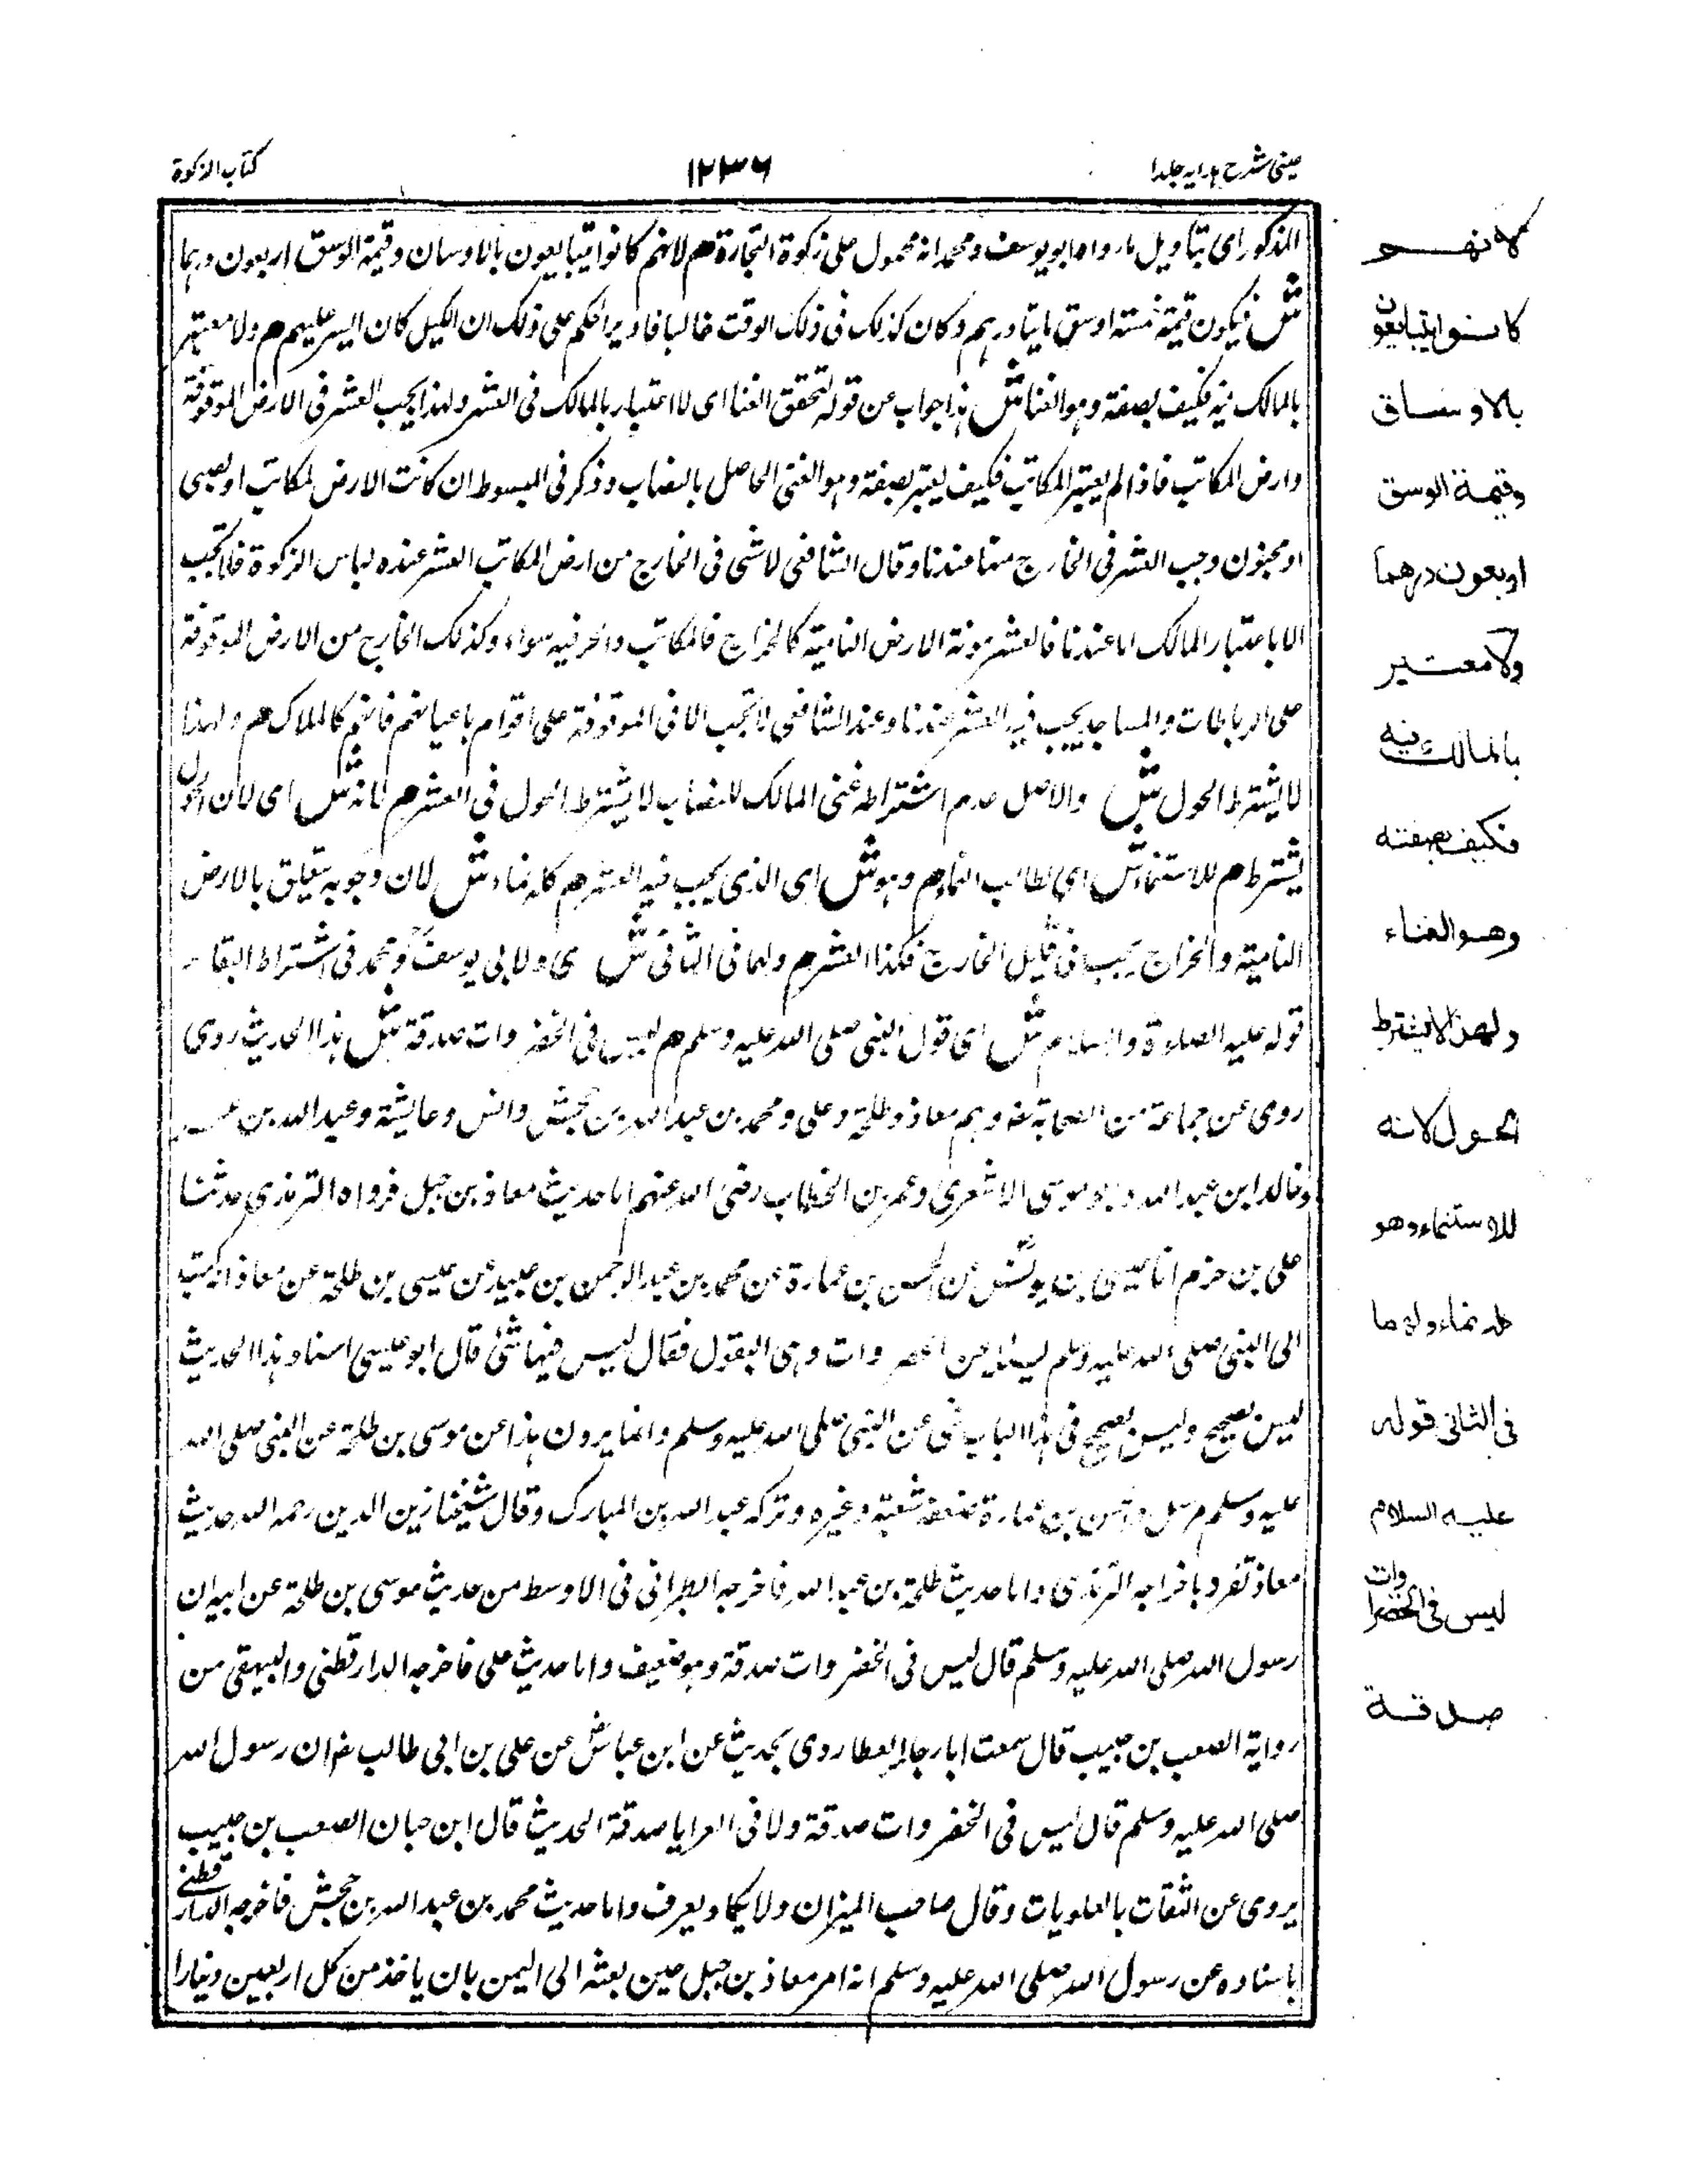 عینی شرح ہدایہ جلد۱
۱۲۳۶
کتاب الزکوة
المذکور ای تباویل ما رواه ابو یوسف ومحمد انه محمول علی زکوة التجارة هم لانهم کانوا یتبایعون بالاوساق وقیمة الوسق اربعون درهما
ش فیکون قیمة خمسة اوسق مایتا درهم وکان کذلک فی ذلک الوقت غالبا فادیر الحکم علی ذلک ان الکیل کان الیسر علیهم هم ولا معتبر
بالمالک فیه فکیف بصفته وهو الغنا ش هذا جواب عن قوله لتحقق الغنا ای لا اعتبار بالمالک فی العشر ولهذا یجب العشر فی الارض الموقوفة
وارض المکاتب فاذا لم یعتبر المکاتب فکیف یعتبر بصفته وهو الغنی الحاصل بالنصاب وذکر فی المبسوط ان کانت الارض لمکاتب او لصبی
او مجنون وجب العشر فی الخارج منها عندنا وقال الشافعی لا شی فی الخارج من ارض المکاتب العشر عنده لباس الزکوة فلا تجب
الا باعتبار المالک اما عندنا فالعشر مونة الارض النامیة کالخراج فالمکاتب والحر فیه سواء وکذلک الخارج من الارض الموقوفة
علی الرباطات والمساجد یجب فیه العشر عندنا وعند الشافعی لا تجب الا فی الموقوفة علی اقوام باعیانهم فانهم کالملاک هم ولهذا
لا یشترط الحول ش والاصل عدم اشتراطه غنی المالک للنصاب لا یشترط الحول فی العشر هم لانه ش ای لان الحول
یشترط هم للاستنماء ش ای لطالب النماء هم وهو ش ای الذی یجب فیه العشر هم کله نماء ش لان وجوبه یتعلق بالارض
النامیة والخراج یجب فی قلیل الخارج فکذا العشر هم ولهما فی الثانی ش ای ولابی یوسف ومحمد فی اشتراط البقاء
قوله علیه الصلاة والسلام ش ای قول النبی صلی الله علیه وسلم هم لیس فی الخضروات صدقة ش هذا الحدیث روی
روی عن جماعة من الصحابة رضه وهم معاذ وطلحة وعلی ومحمد بن عبد الله بن جحش وانس وعایشة وعبد الله بن عمر
وخالد ابن عبد الله وابو موسی الاشعری وعمر بن الخطاب رضی الله عنهم اما حدیث معاذ بن جبل فرواه الترمذی حدثنا
علی بن حزم انا عیسی بن یونس عن الحسن بن عمارة عن محمد بن عبد الرحمن بن عبید عن عیسی بن طلحة عن معاذ انه کتب
الی النبی صلی الله علیه وسلم یساله عن الخضروات وهی البقول فقال لیس فیها شئ قال ابو عیسی اسناد هذا الحدیث
لیس بصحیح ولیس بصحیح فی هذا الباب شی عن النبی صلی الله علیه وسلم وانما یرون هذا عن موسی بن طلحة عن النبی صلی الله
علیه وسلم مرسل والحسن بن عمارة ضعفه شعبة وغیره وترکه عبد الله بن المبارک وقال شیخنا زین الدین رحمه الله حدیث
معاذ تفرد باخراجه الترمذی واما حدیث طلحة بن عبد الله فاخرجه الطبرانی فی الاوسط من حدیث موسی بن طلحة عن ابیه ان
رسول الله صلی الله علیه وسلم قال لیس فی الخضروات صدقة وهو ضعیف واما حدیث علی فاخرجه الدارقطنی والبیهقی من
روایة الصعب بن حبیب قال سمعت ابا رجاء العطاردی یحدیث عن ابن عباس عن علی بن ابی طالب رضه ان رسول الله
صلی الله علیه وسلم قال لیس فی الخضروات صدقة ولا فی العرایا صدقة الحدیث قال ابن حبان الصعب بن حبیب
یروی عن الثقات بالعلویات وقال صاحب المیزان ولا یکاد یعرف واما حدیث محمد بن عبد الله بن جحش فاخرجه الدارقطنی
باسناده عن رسول الله صلی الله علیه وسلم انه امر معاذ بن جبل حین بعثه الی الیمن بان یاخذ من کل اربعین دینارا
لانهم
کانوا یتبایعون
بالاوساق
وقیمة الوسق
اربعون درهما
ولا معتبر
بالمالک فیه
فکیف بصفته
وهو الغناء
ولهذا لا یشترط
الحول لانه
للاستنماء وهو
کله نماء ولهما
فی الثانی قوله
علیه السلام
لیس فی الخضراوات
صدقة